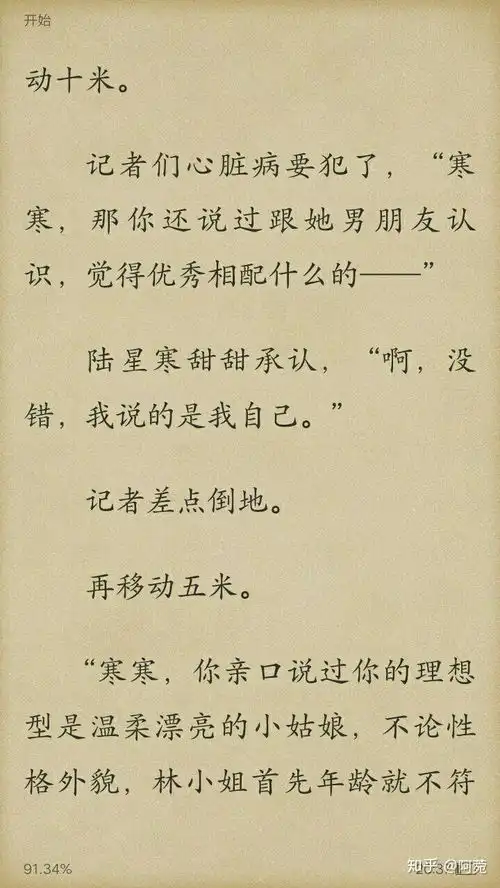 开始
动十米。
记者们心脏病要犯了，“寒
寒，那你还说过跟她男朋友认
识，觉得优秀相配什么的——”
陆星寒甜甜承认，“啊，没
错，我说的是我自己。”
记者差点倒地。
再移动五米。
“寒寒，你亲口说过你的理想
型是温柔漂亮的小姑娘，不论性
格外貌，林小姐首先年龄就不符
91.34%
知乎 @阿菀